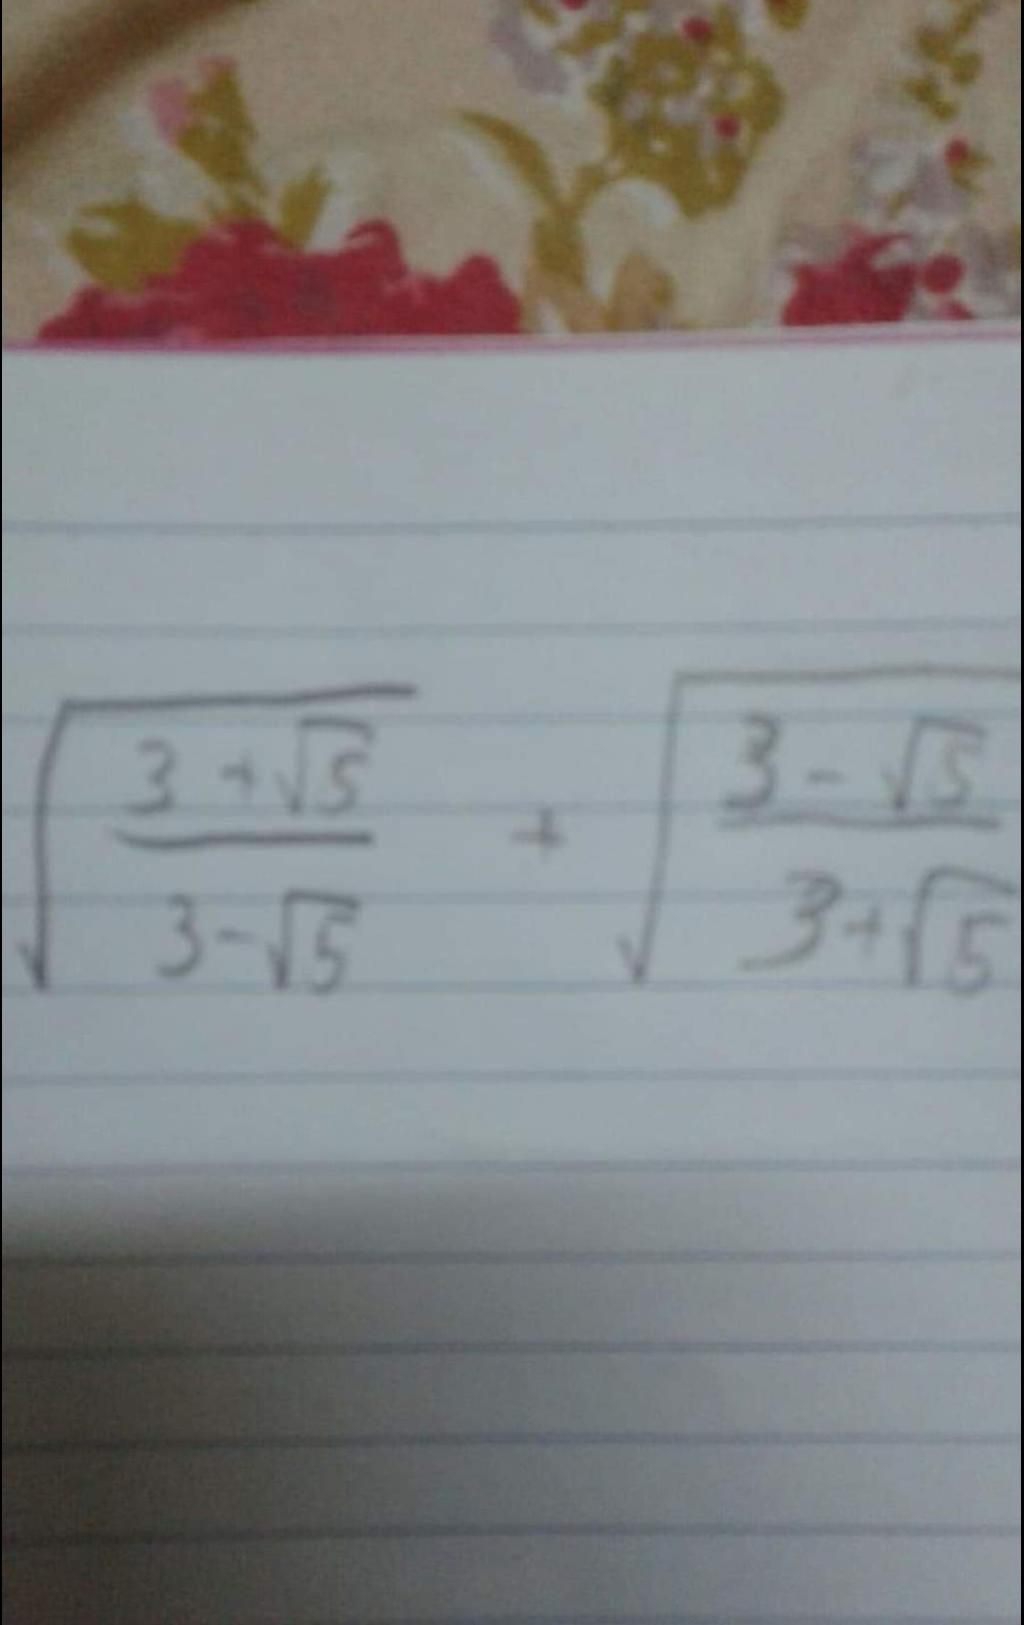 √((3 + √5)/(3 - √5)) + √((3 - √5)/(3 + √5))